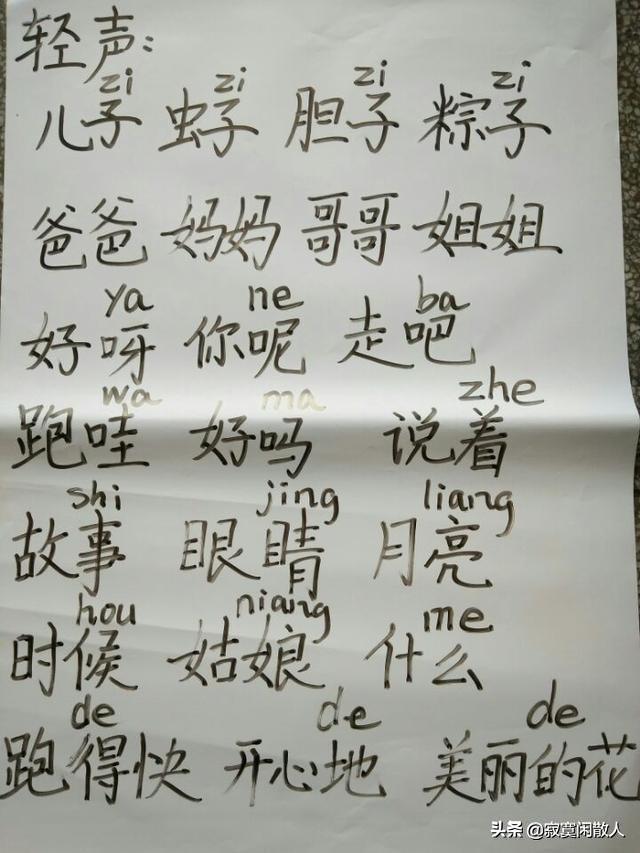 轻声:
zi zi zi zi
儿子 虫子 胆子 粽子
爸爸 妈妈 哥哥 姐姐
ya ne ba
好呀 你呢 走吧
wa ma zhe
跑哇 好吗 说着
shi jing liang
故事 眼睛 月亮
hou niang me
时候 姑娘 什么
de de de
跑得快 开心地 美丽的花
头条 @寂寞闲散人